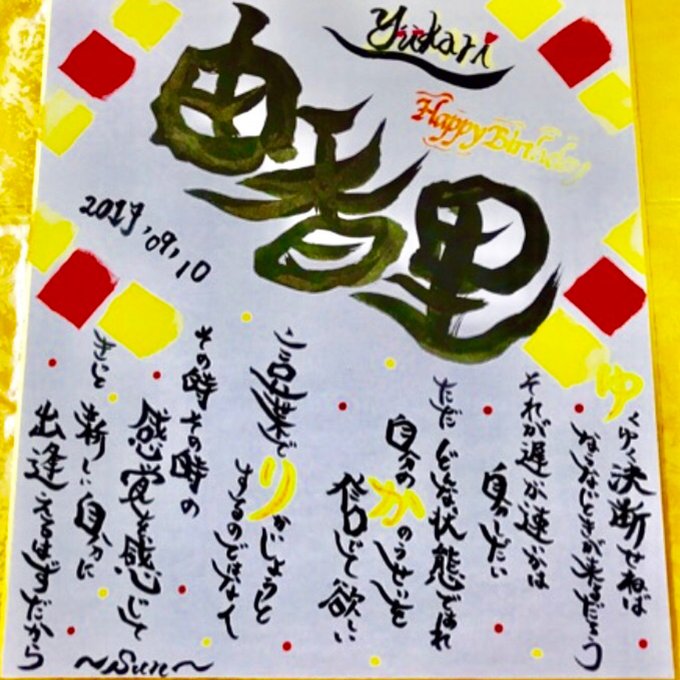 Yukari
Happy Birthday
由香里
2017,09,10
ゆくゆく決断せねば
ならないときが来るだろう
それが遅か速かは
自分しだい
ただどんな状態であれ
自分のかのうせいを
信じて欲しい
言葉でりかいしようと
するのではなく
その時その時の
感覚を感じて
きっと新しい自分に
出逢えるはずだから
〜Sun〜